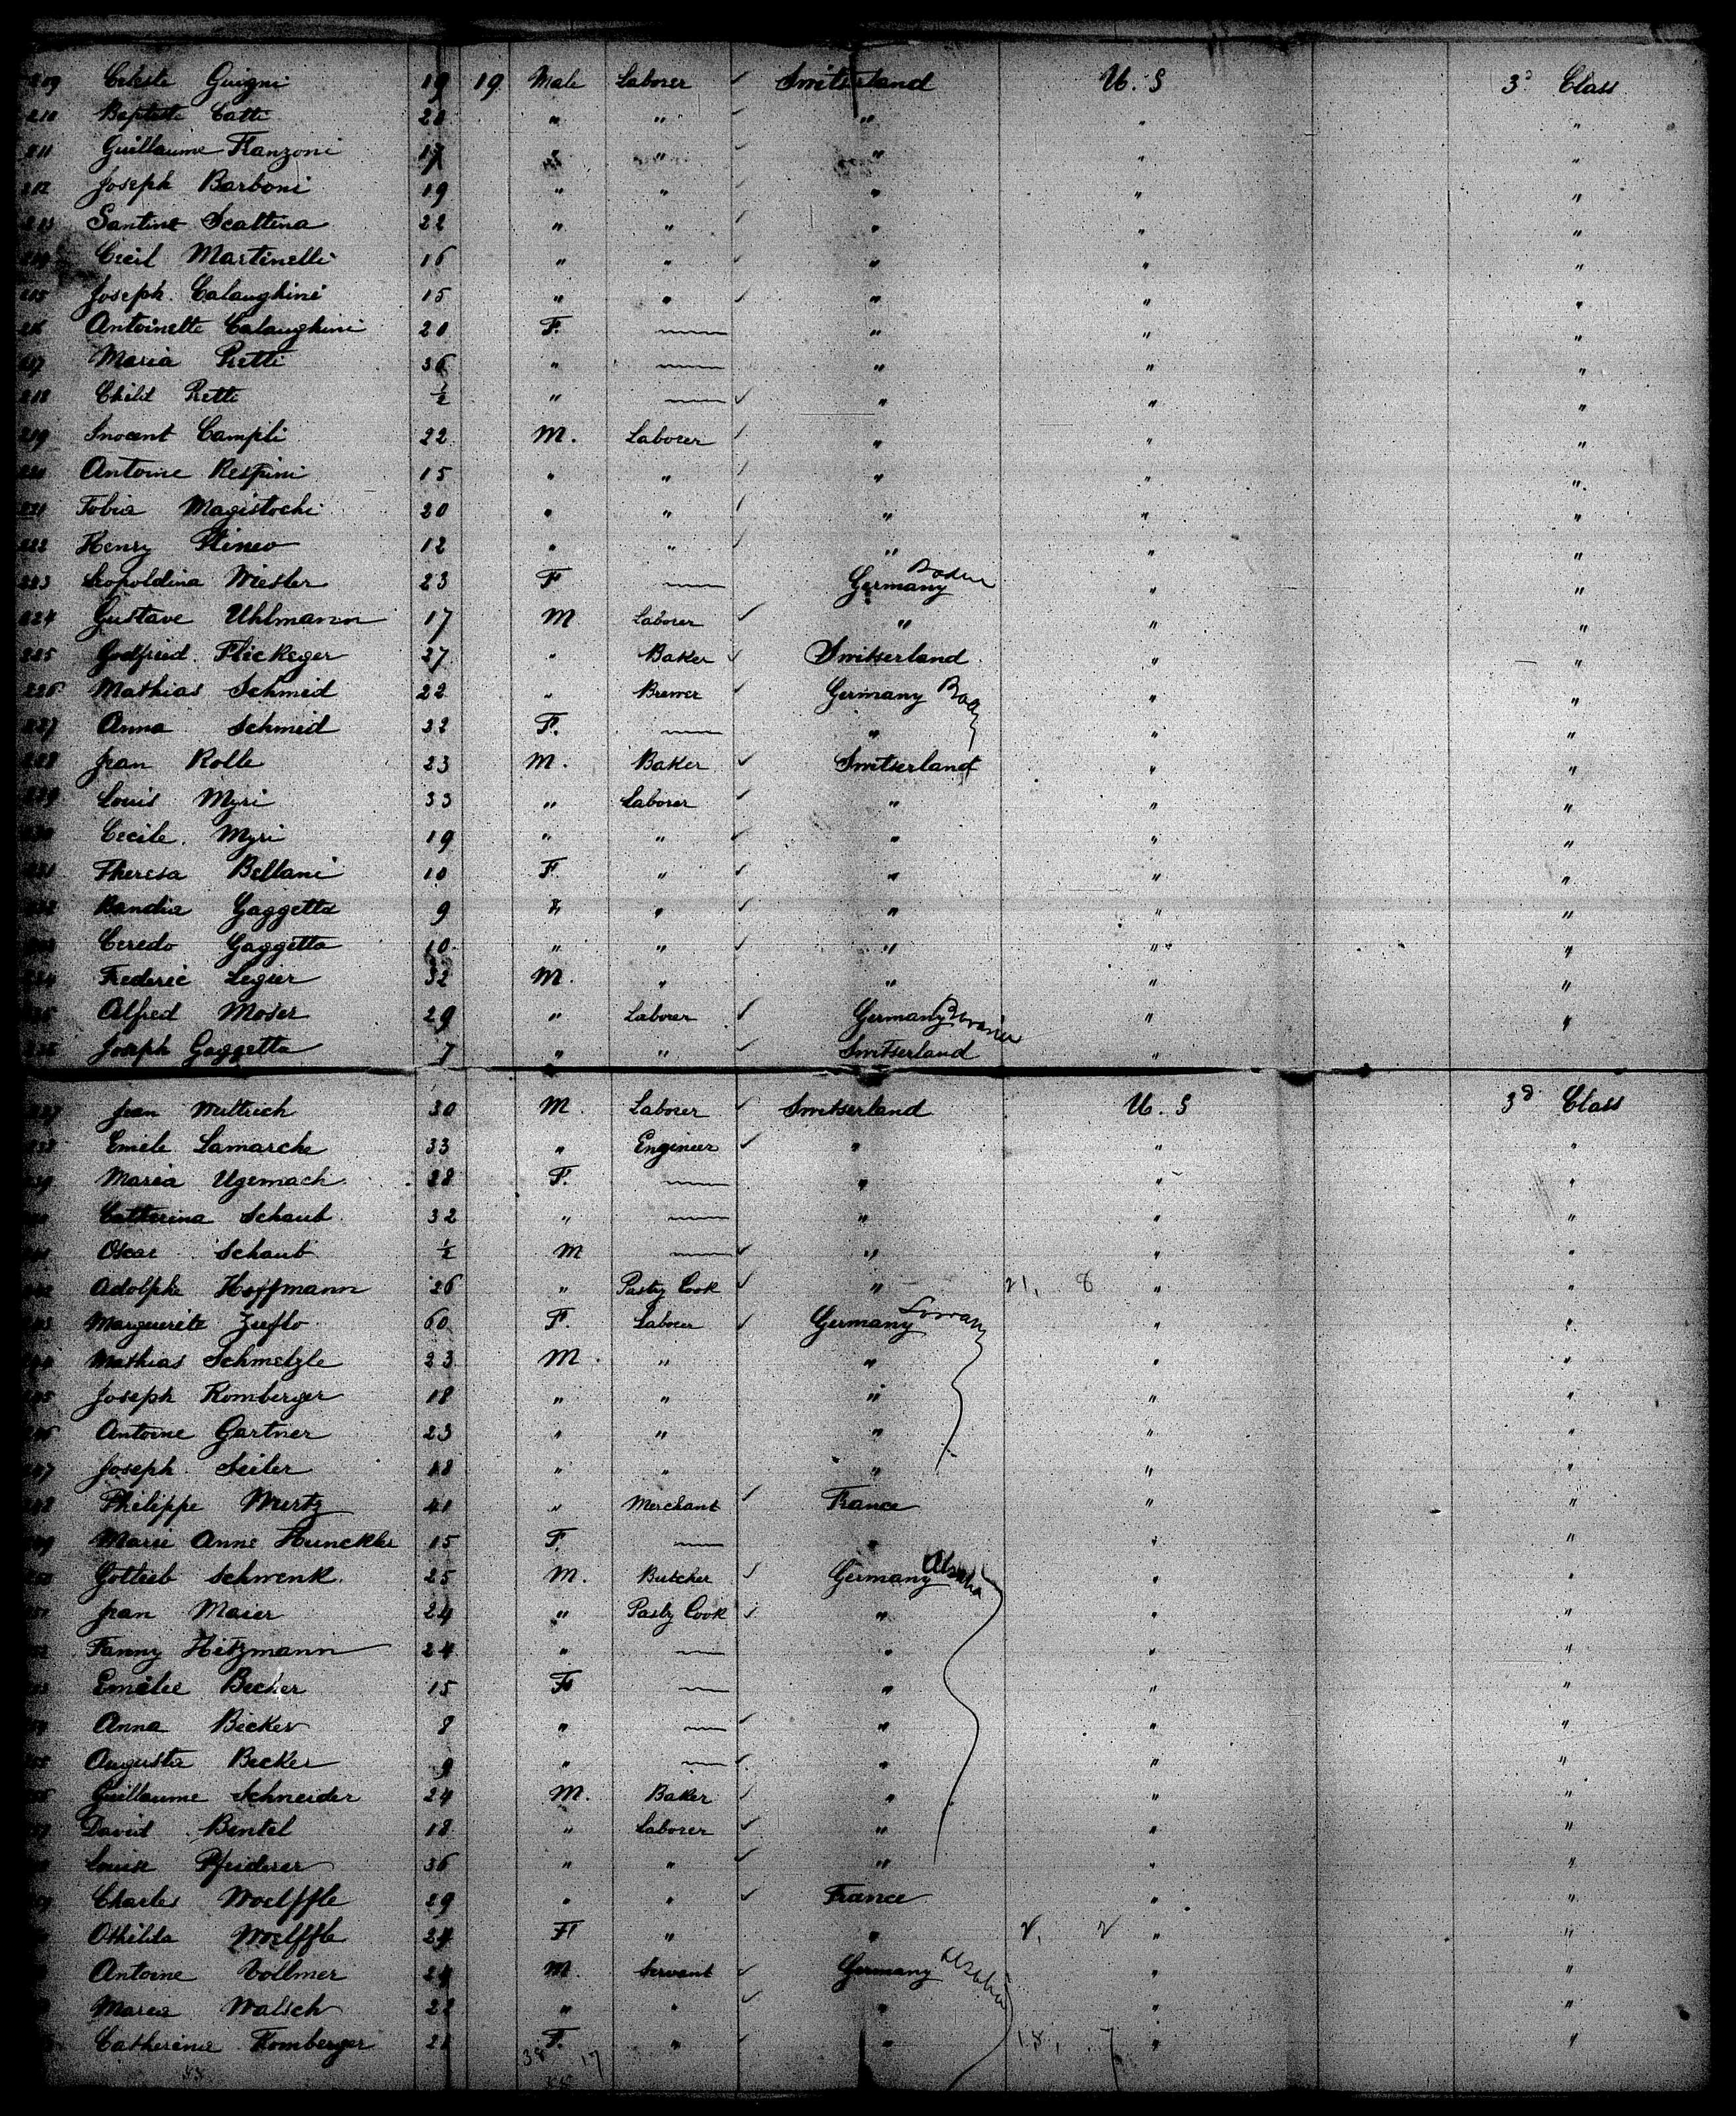 209 Celeste Guigni 19 19 Male Laborer ✓ Switserland U. S 3d Class
210 Baptiste Catti 20 " " ✓ " " "
211 Guillaume Franzoni 17 " " ✓ " " "
212 Joseph Barboni 19 " " ✓ " " "
213 Santino Scattina 22 " " ✓ " " "
214 Cecil Martinelli 16 " " ✓ " " "
215 Joseph Calanghini 15 " " ✓ " " "
216 Antoinette Calanghini 20 F. — " " "
217 Maria Pretti 36 " — " " "
218 Child Pretti ½ " — ✓ " " "
219 Inocent Campli 22 M. Laborer ✓ " " "
220 Antoine Respini 15 " " ✓ " " "
221 Tobia Magistochi 20 " " ✓ " " "
222 Henry 12 " " ✓ " " "
223 Leopoldina Wiesler 23 F — Germany Baden " "
224 Gustave Uhlmann 17 M Laborer ✓ " " "
225 Godfried Flickeger 27 " Baker ✓ Switserland " "
226 Mathias Schmid 22 " Brewer ✓ Germany " "
227 Anna Schmid 22 F. — " " "
228 Jean Rolle 23 M. Baker ✓ Switserland " "
229 Louis Myri 33 " Laborer ✓ " " "
230 Cecile Myri 19 " " ✓ " " "
231 Theresa Bellani 10 F " ✓ " " "
232 Gaggetta 9 " ✓ " " "
233 Ceredo Gaggetta 10 " " ✓ " " "
234 Frederic Legier 32 M. " " " "
235 Alfred Moser 29 " Laborer ✓ Germany " "
236 Joseph Gaggetta 7 " " ✓ Switserland "
237 Jean Wuttrich 30 M. Laborer ✓ Switserland U. S 3d Class
238 Emile Lamarche 33 " Engineer ✓ " " "
239 Maria Ugemach 28 F. — " " "
Catterina Schaub 32 " — " " "
Oscar Schaub ½ M — ✓ " " "
Adolphe Hoffmann 26 " Pasty Cook ✓ " 21, 8 " "
Marguerite Zuflo 60 F. Laborer ✓ Germany " "
Mathias Schmelzle 23 M. " " " "
Joseph Romberger 18 " " " " "
Antoine Gartner 23 " " " " "
Joseph Seiler 18 " " " " "
Philippe Wurtz 41 " Merchant ✓ France " "
Marie Anne Hunckler 15 F. — " " "
Gottlieb Schwenk 25 M. Butcher ✓ Germany " "
Jean Maier 24 " Pasty Cook ✓ " " "
Fanny Hitzmann 24 " — " " "
Emilie Becker 15 F — " " "
Anna Becker 8 " — ✓ " " "
Augusta Becker 9 " — ✓ " " "
Guillaume Schneider 24 M. Baker ✓ " " "
David Bentel 18 " Laborer ✓ " " "
Louise Pfuderer 36 " " ✓ " " "
Charles Woelffle 29 " " ✓ France " "
Othilda Woelffle 24 F " " 2, 2 " "
Antoine Vollmer 24 M. Servant ✓ Germany " "
Maria Walsch 22 " " ✓ " " "
Catherine Romberger 21 F. " ✓ " 18, 7 " "
38 17